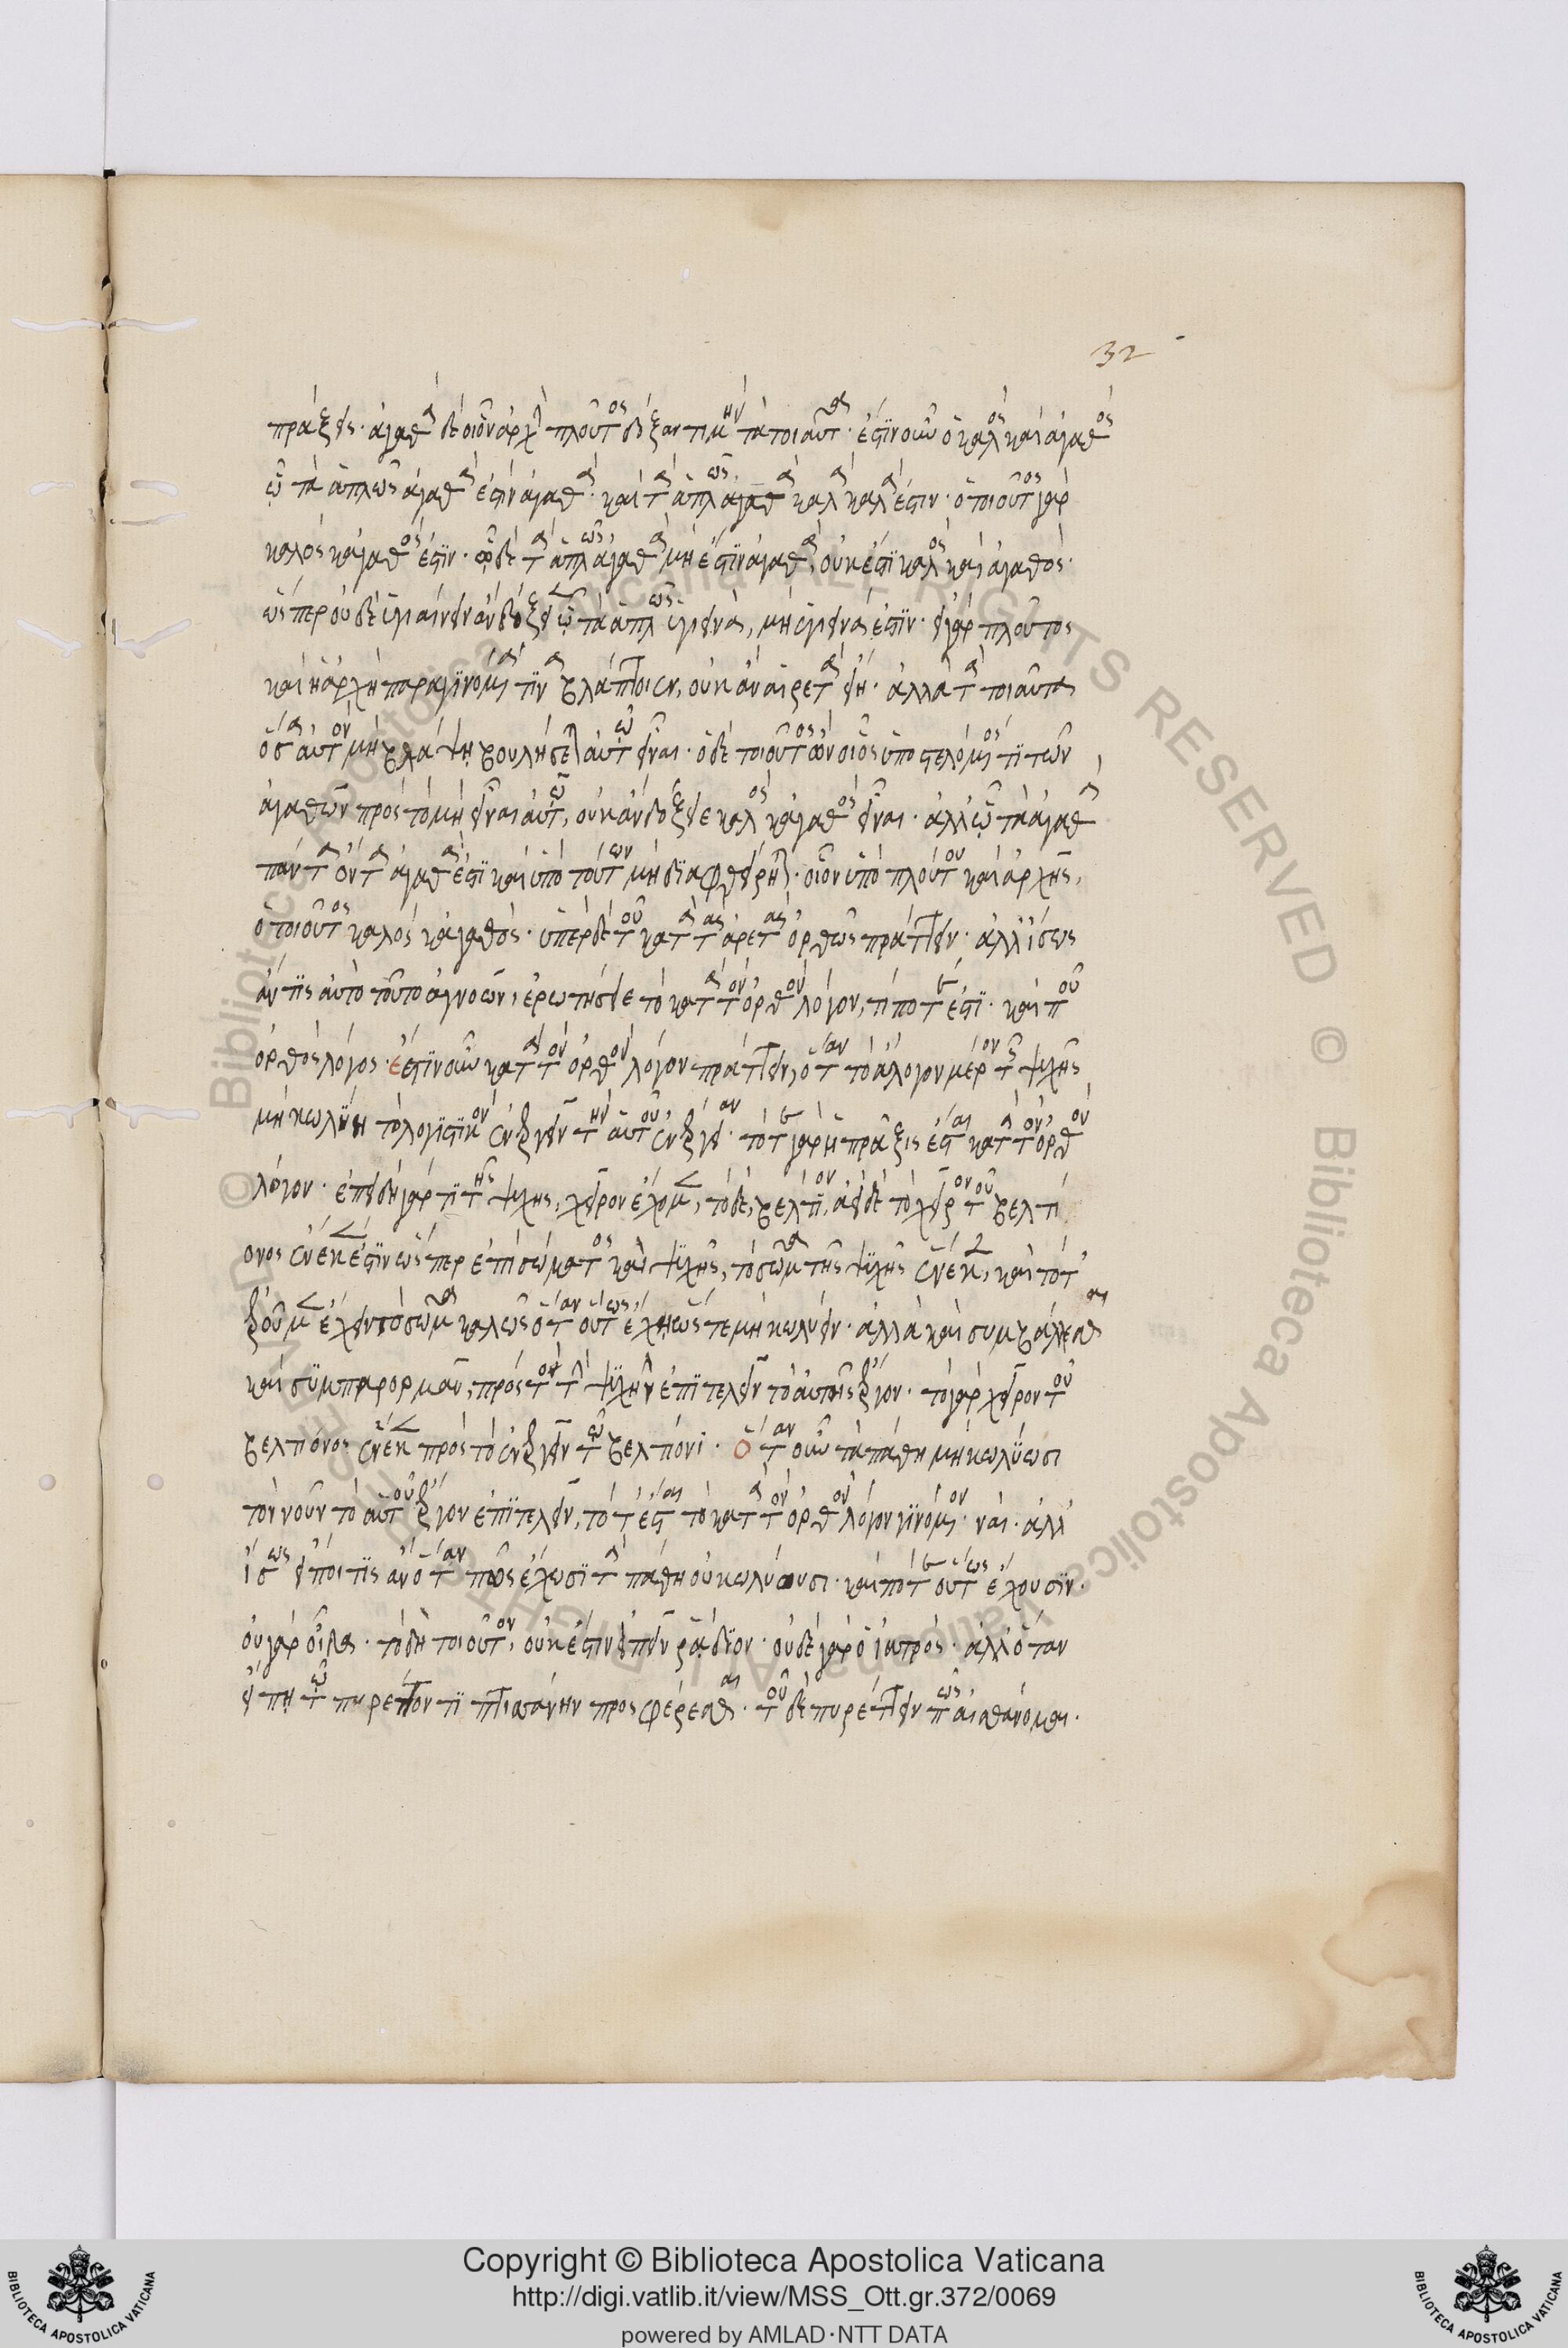 32
πράξεις· ἀγαθὰ δὲ οἷον ἀρχὴ πλοῦτος δόξαν τιμὴν τὰ τοιαῦτα· ἔστιν οὖν ὁ καλὸς καὶ ἀγαθὸς
ᾧ τὰ ἁπλῶς ἀγαθὰ ἐστὶν ἀγαθὰ· καὶ τὰ ἁπλῶς ἀγαθὰ καλὰ καλὰ ἐστιν· ὁ τοιοῦτος γὰρ
καλὸς κἀγαθός ἐστιν· ᾧ δὲ τὰ ἁπλῶς ἀγαθὰ μή ἐστιν ἀγαθὰ, οὐκ ἔστι καλὸς καὶ ἀγαθός·
ὥσπερ οὐδὲ ὑγιαίνειν ἂν δόξειεν ᾧ τὰ ἁπλῶς ὑγιεινὰ, μὴ ὑγιεινά ἐστιν· εἰ γὰρ πλοῦτος
καὶ ἡ ἀρχὴ παραγινόμενα τινὰ βλάπτοιεν, οὐκ ἂν αἱρετὰ εἴη· ἀλλὰ τὰ τοιαῦτα
ὅσα αὐτὸν μὴ βλάψῃ βουλήσεται αὐτῷ εἶναι· ὁ δὲ τοιοῦτος ὢν οἷος ὑποστελόμενος τι τῶν
ἀγαθῶν πρὸς τὸ μὴ εἶναι αὐτῷ, οὐκ ἂν δόξειε καλὸς κἀγαθὸς εἶναι· ἀλλ' ᾧ τὰ ἀγαθὰ
πάντα ὄντα ἀγαθά ἐστι καὶ ὑπὸ τούτων μὴ διαφθείρηται· οἷον ὑπὸ πλούτου καὶ ἀρχῆς,
ὁ τοιοῦτος καλὸς κἀγαθός· ὑπὲρ δὲ τοῦ κατὰ τὰς ἀρετὰς ὀρθῶς πράττειν· ἀλλ' ἴσως
ἄν τις αὐτὸ τοῦτο ἀγνοῶν, ἐρωτήσειε τὸ κατὰ τὸν ὀρθὸν λόγον, τί ποτέ ἐστι· καὶ ποῦ
ὀρθὸς λόγος· ἔστιν οὖν κατὰ τὸν ὀρθὸν λόγον πράττειν, ὅταν τὸ ἄλογον μέρον τῆς ψυχῆς
μὴ κωλύῃ τὸ λογιστικὸν ἐνεργεῖν τὴν αὐτοῦ ἐνέργειαν· τότε γὰρ ἡ πρᾶξις ἔσται κατὰ τὸν ὀρθὸν
λόγον· ἐπειδὴ γάρ τι τῆς ψυχῆς, χεῖρον ἔχομεν, τὸ δὲ, βέλτιον, ἀεὶ δὲ τὸ χεῖρον τοῦ βελτί
ονος ἕνεκέν ἐστιν ὥσπερ ἐπὶ σώματος καὶ ψυχῆς, τὸ σῶμα τῆς ψυχῆς ἕνεκεν, καὶ τότ'
ἐροῦμεν ἔχειν τὸ σῶμα καλῶς ὅταν οὕτως ἔχῃ ὥστε μὴ κωλύειν· ἀλλὰ καὶ συμβάλλεσθαι
καὶ συμπαρορμᾶν, πρὸς τὸ τὴν ψυχὴν ἐπιτελεῖν τὸ αὑτῆς ἔργον· τὸ γὰρ χεῖρον τοῦ
βελτίονος ἕνεκεν πρὸς τὸ ἐνεργεῖν τῷ βελτίονι· ὅταν οὖν τὰ πάθη μὴ κωλύωσι
τὸν νοῦν τὸ αὑτοῦ ἔργον ἐπιτελεῖν, τότ' ἔσται τὸ κατὰ τὸν ὀρθὸν λόγον γινόμενον· ναί· ἀλλ'
ἴσως εἴποι τις ἂν ὅταν πῶς ἔχωσι τὰ πάθη οὐ κωλύουσι· καὶ πότε οὕτως ἔχουσιν·
οὐ γὰρ οἶδα· τὸ δὴ τοιοῦτον, οὐκ ἔστιν εἰπεῖν ῥᾴδιον· οὐδὲ γὰρ ὁ ἰατρός· ἀλλ' ὅταν
εἴπῃ τῷ πυρέττοντι πτισάνην προσφέρεσθαι· τοῦ δὲ πυρέττειν πῶς αἰσθάνομαι·
Copyright © Biblioteca Apostolica Vaticana
http://digi.vatlib.it/view/MSS_Ott.gr.372/0069
powered by AMLAD·NTT DATA